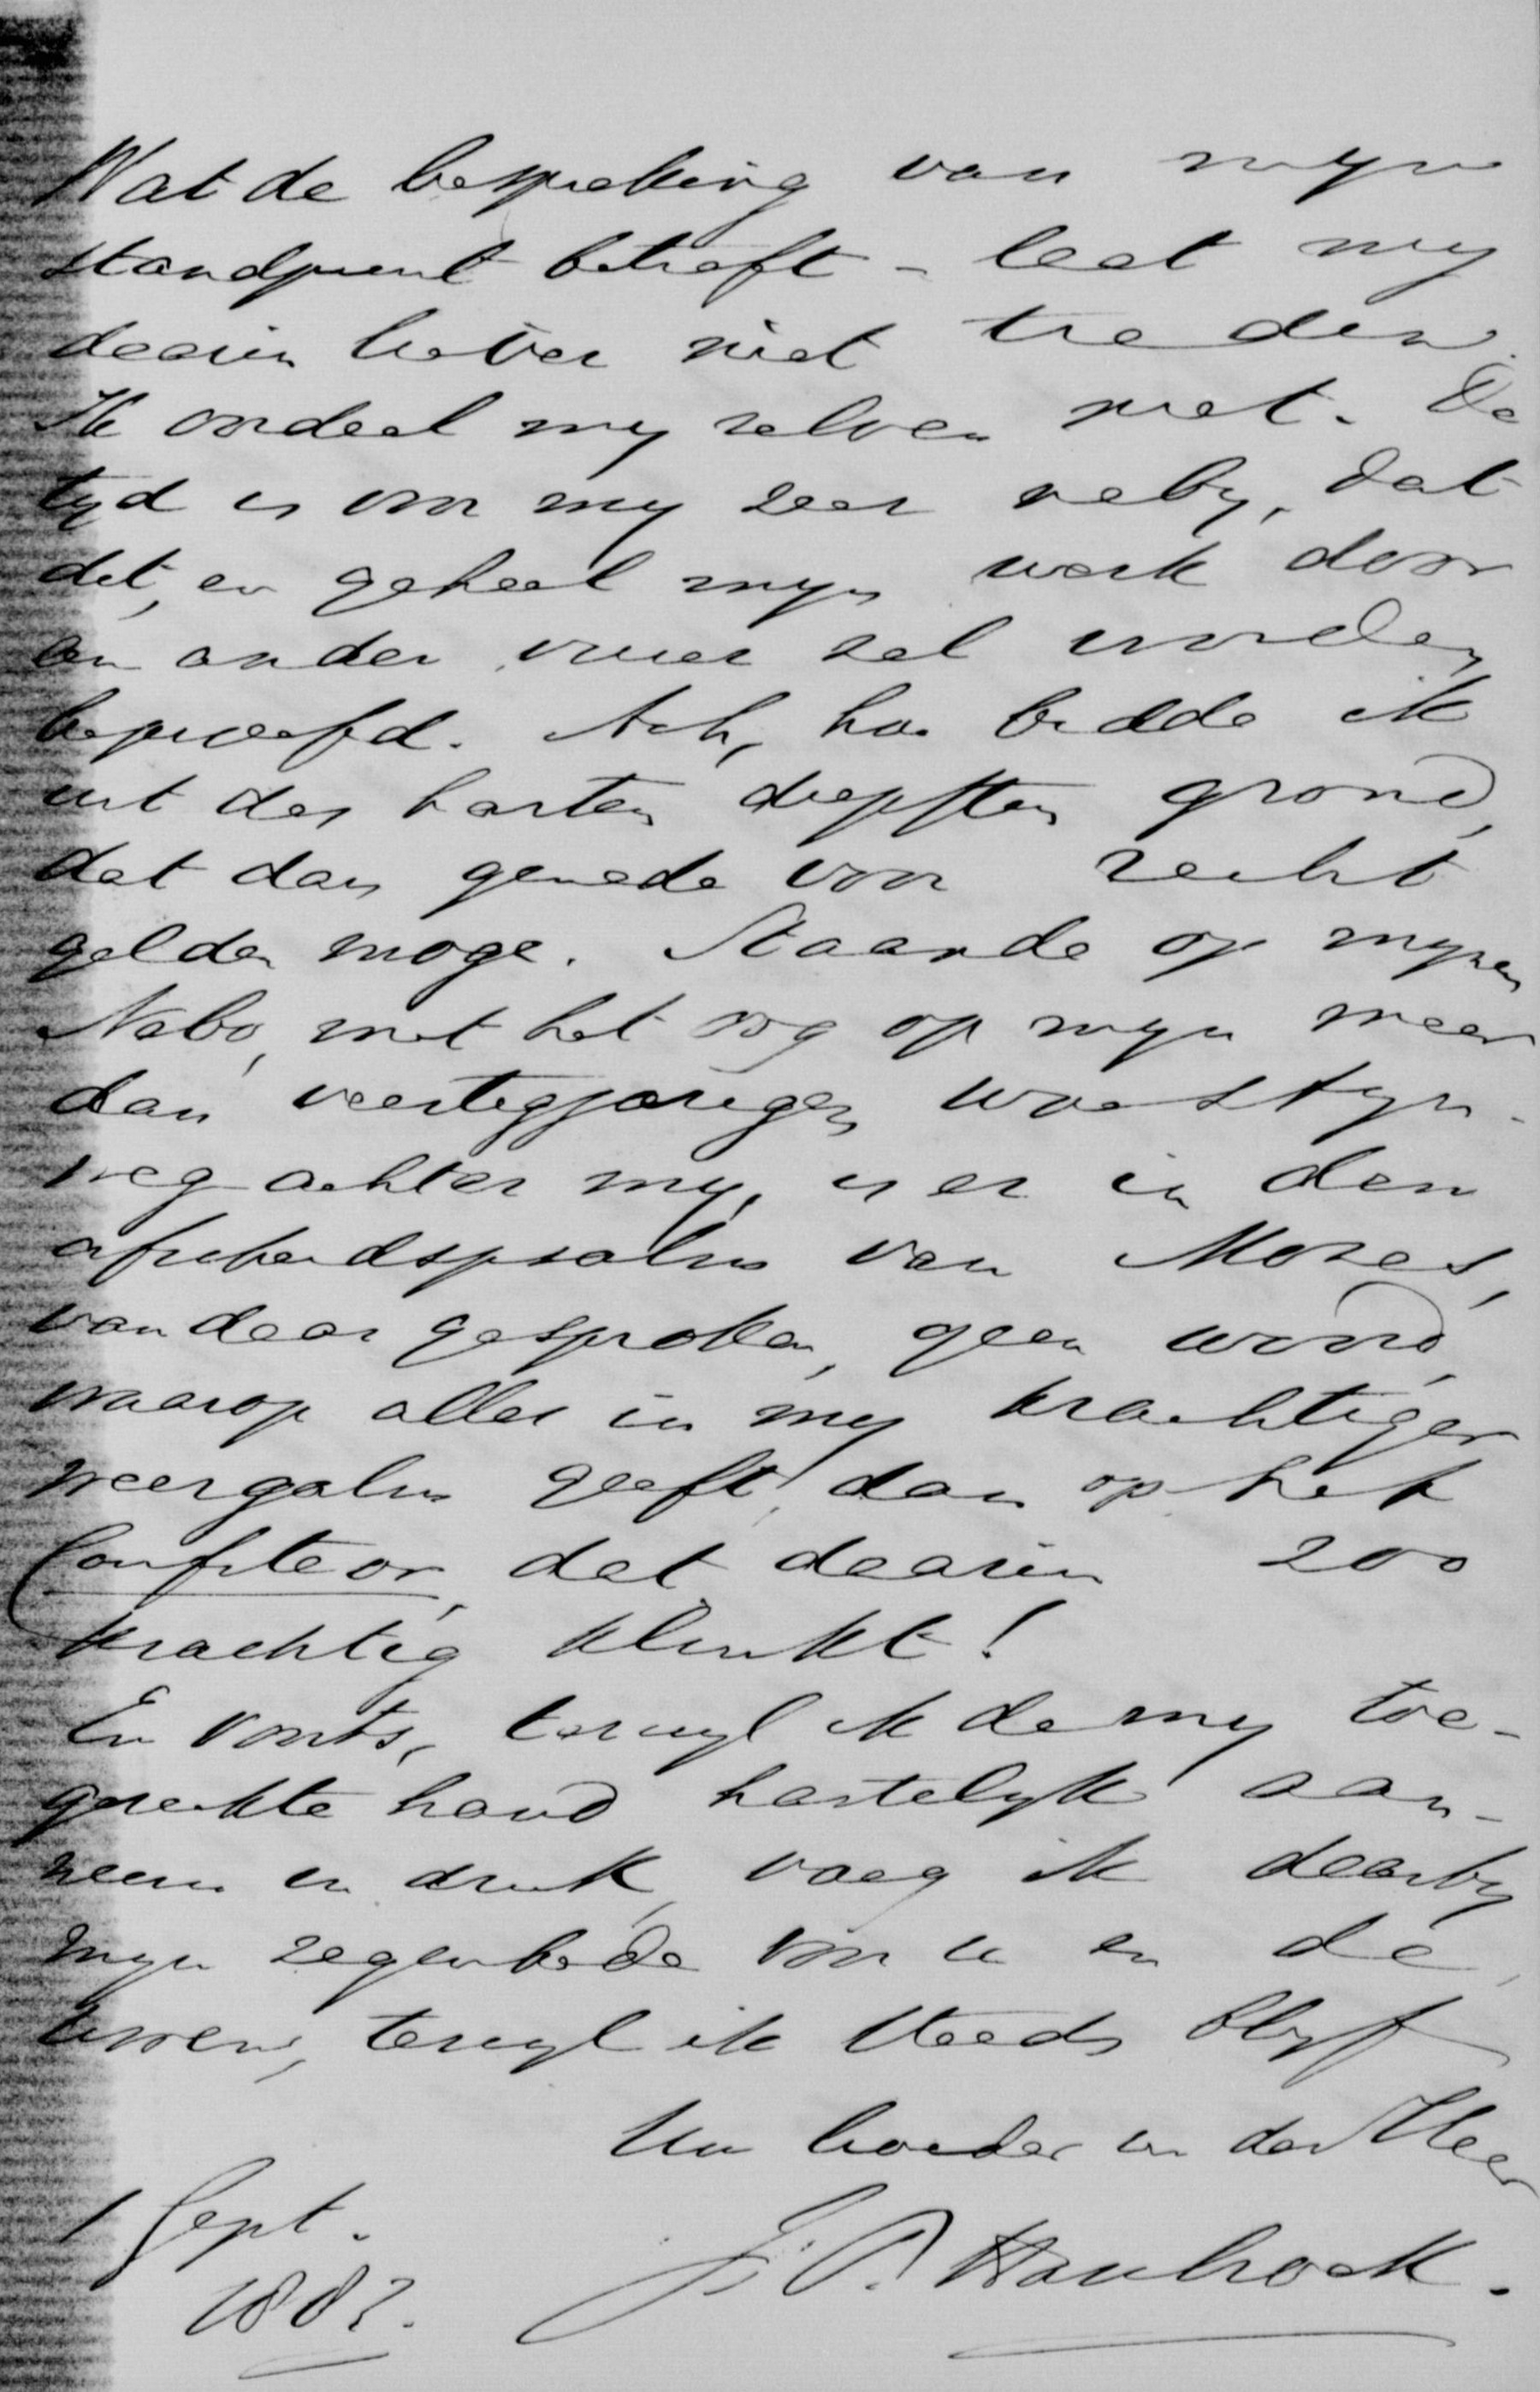 Wat de bespreking van mijn
standpunt betreft – laat mij
daarin liever niet treden.
Ik oordeel mij zelven niet. De
tijd is voor mij zeer nabij, dat
dit, en geheel mijn werk door
een ander vuur zal worden
beproefd. Ach, hoe bidde ik
uit des harten diepsten grond,
dat dan genade voor recht
gelden moge. Staande op mijnen
Nebo, met het oog op mijn meer
dan veertigjarigen woestijn-
weg achter mij, is er in den
afscheidspsalm van Mozes,
van daar gesproken, geen woord,
waarop alles in mij krachtiger
weergalm geeft, dan op het
Confiteor, dat daarin zoo
krachtig klinkt!
En voorts, terwijl ik de mij toe-
gereikte hand hartelijk aan-
neem en druk, voeg ik daarbij
mijn zegenbede voor u en de
uwen, terwijl ik steeds blijf
Uw broeder in den Heer
1 Sept. J. P. Hasebroek.
1882.